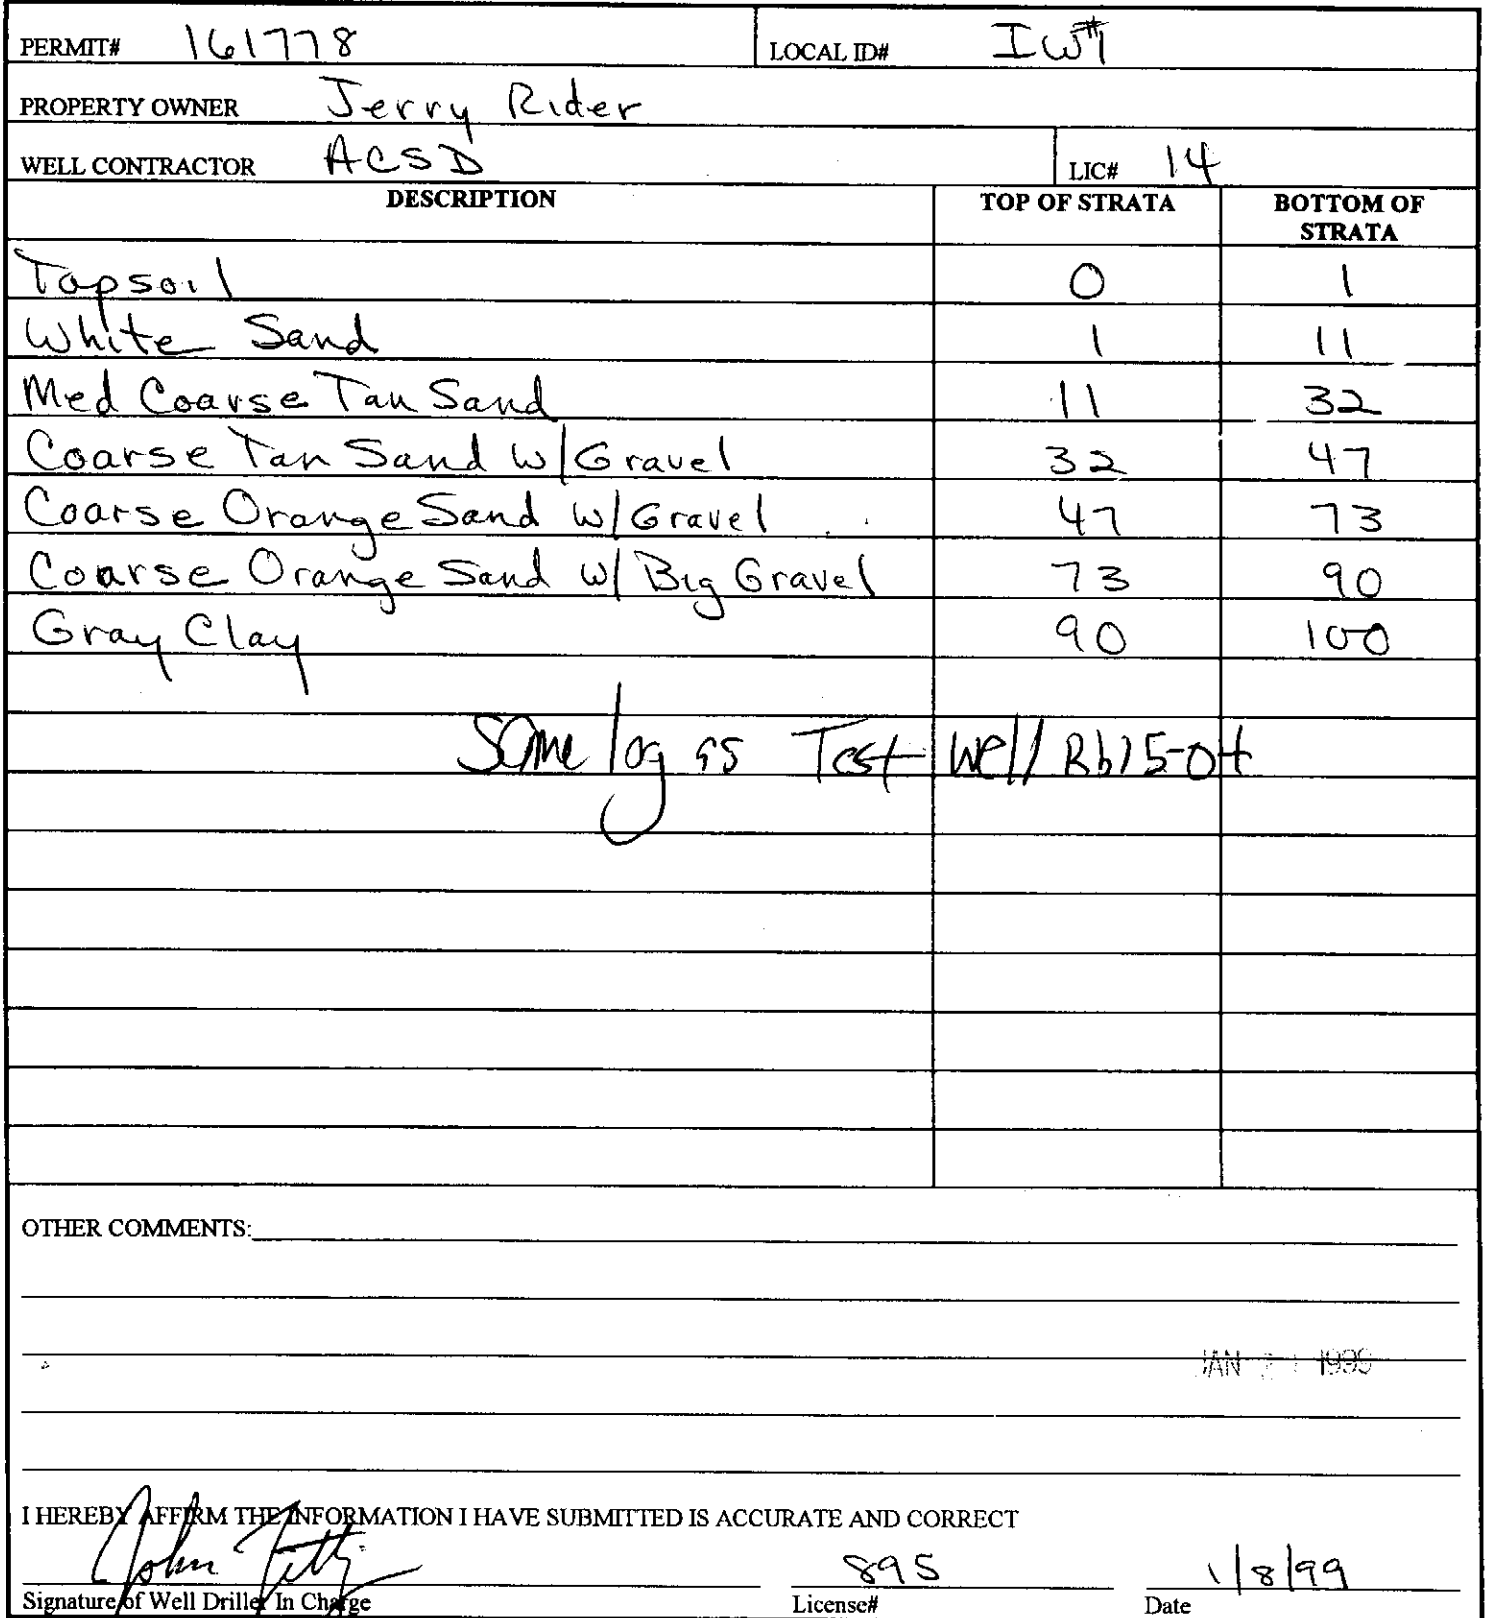 PERMIT# 161778 LOCAL ID# IW#1
PROPERTY OWNER Jerry Rider
WELL CONTRACTOR ACSD LIC# 14
DESCRIPTION TOP OF STRATA BOTTOM OF STRATA
Topsoil 0 1
White Sand 1 11
Med Coarse Tan Sand 11 32
Coarse Tan Sand w/Gravel 32 47
Coarse Orange Sand w/Gravel 47 73
Coarse Orange Sand w/ Big Gravel 73 90
Gray Clay 90 100
Same log as Test Well
OTHER COMMENTS:
JAN 1999
I HEREBY AFFIRM THE INFORMATION I HAVE SUBMITTED IS ACCURATE AND CORRECT
John 895 1/8/99
Signature of Well Driller In Charge License# Date